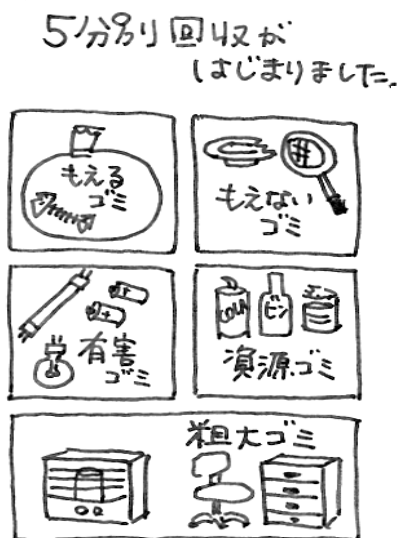 5分別回収が
はじまりました。
もえる
ゴミ
もえない
ゴミ
有害
ゴミ
COLA
ビン
資源ゴミ
粗大ゴミ